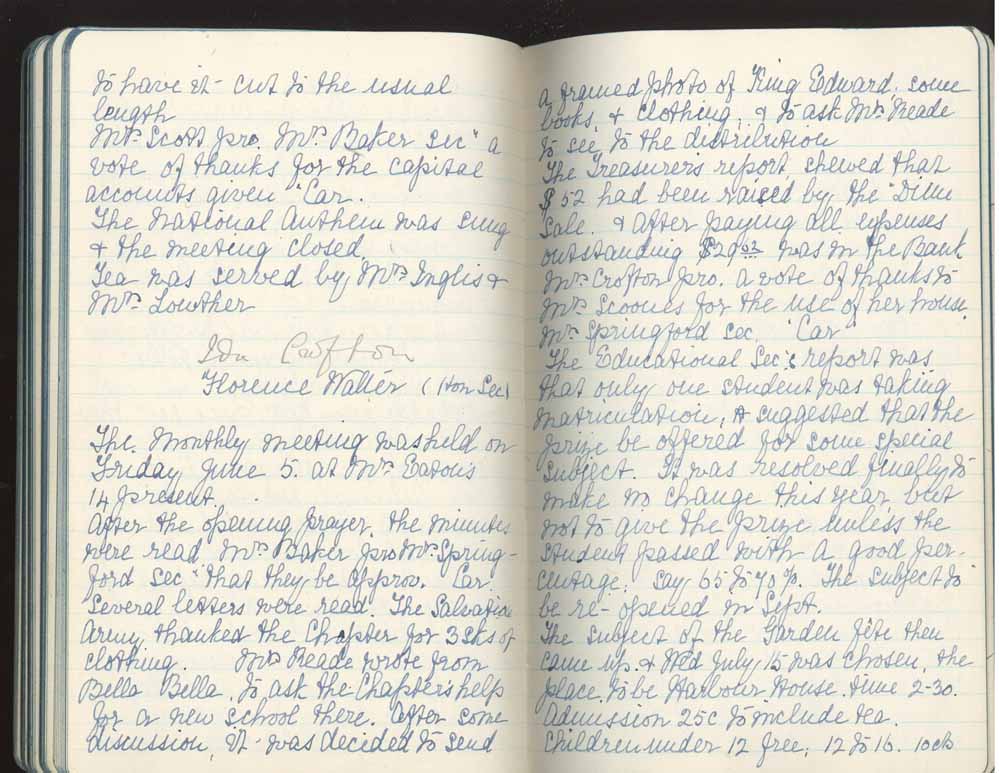 to have it cut to the usual
length
Mrs Scott pro. Mrs Baker sec "a
vote of thanks for the capital
accounts given" Car.
The National Anthem was sung
& the meeting closed.
Tea was served by Mrs Inglis &
Mrs Lowther
Ida Crofton
Florence Walter (Hon Sec)
The Monthly meeting was held on
Friday June 5. at Mrs Eaton's
14 present.
After the opening prayer, the minutes
were read. Mrs Baker pro Mrs Spring-
ford sec. "that they be approv. Car.
Several letters were read. The Salvation
Army, thanked the Chapter for 3 sks of
clothing. Mrs Reade wrote from
Bella Bella. To ask the Chapter's help
for a new school there. After some
discussion it was decided to send
a framed photo of King Edward, some
books, & clothing, & to ask Mrs Reade
to see to the distribution
The Treasurer's report, shewed that
$52 had been raised by the "Dime
Sale. & after paying all expenses
outstanding $29.02 was in the Bank
Mrs Crofton pro. a vote of thanks to
Mrs Scoones for the use of her house.
Mrs Springford sec. "Car"
The Educational Sec's report was
that only one student was taking
Matriculation, & suggested that the
prize be offered for some special
subject. It was resolved finally to
make no change this year, but
not to give the prize unless the
student passed with a good per-
centage, say 65 to 70%. The subject to
be re-opened in Sept.
The subject of the Garden Fête then
came up. & Wed July, 15 was chosen, the
place to be Harbour House. time 2-30.
Admission 25c to include tea.
Children under 12 free; 12 to 16. 10cts